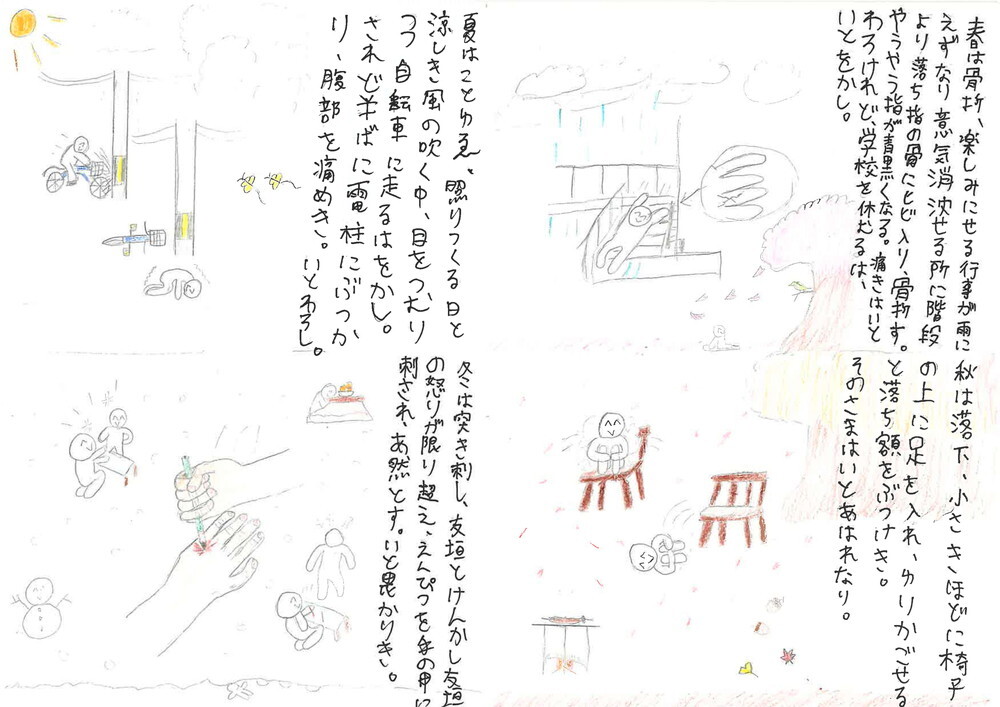 春は骨折、楽しみにせる行事が雨に
えずなり意気消沈せる所に階段
より落ち指の骨にヒビ入り、骨折す。
やうやう指が青黒くなる。痛きはいと
わろけれど、学校を休むるは、
いとをかし。
夏はことゆゑ。照りつくる日と
涼しき風の吹く中、目をつむり
つつ自転車に走るはをかし。
されど半ばに電柱にぶつか
り、腹部を痛めき。いとわろし。
秋は落下、小さきほどに椅子
の上に足を入れ、ゆりかごせる
と落ち額をぶつけき。
そのさまはいとあはれなり。
冬は突き刺し、友垣とけんかし友垣
の怒りが限り超え、えんぴつを手の甲に
刺され、あ然とす。いと愚かりき。